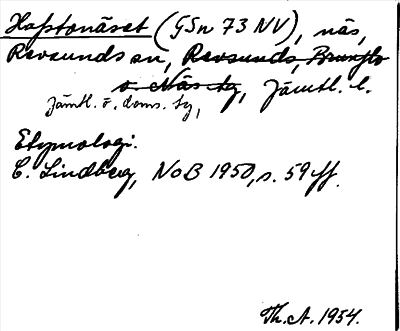 Haptonäset (GSn 73 NV), näs,
Revsunds sn, Revsunds, Brunflo
o. Näs tg, Jämtl. l.
Jämtl. ö. doms. tg,
Etymologi.
C. Lindberg, NoB 1950, s. 59 ff.
Th. A. 1954.